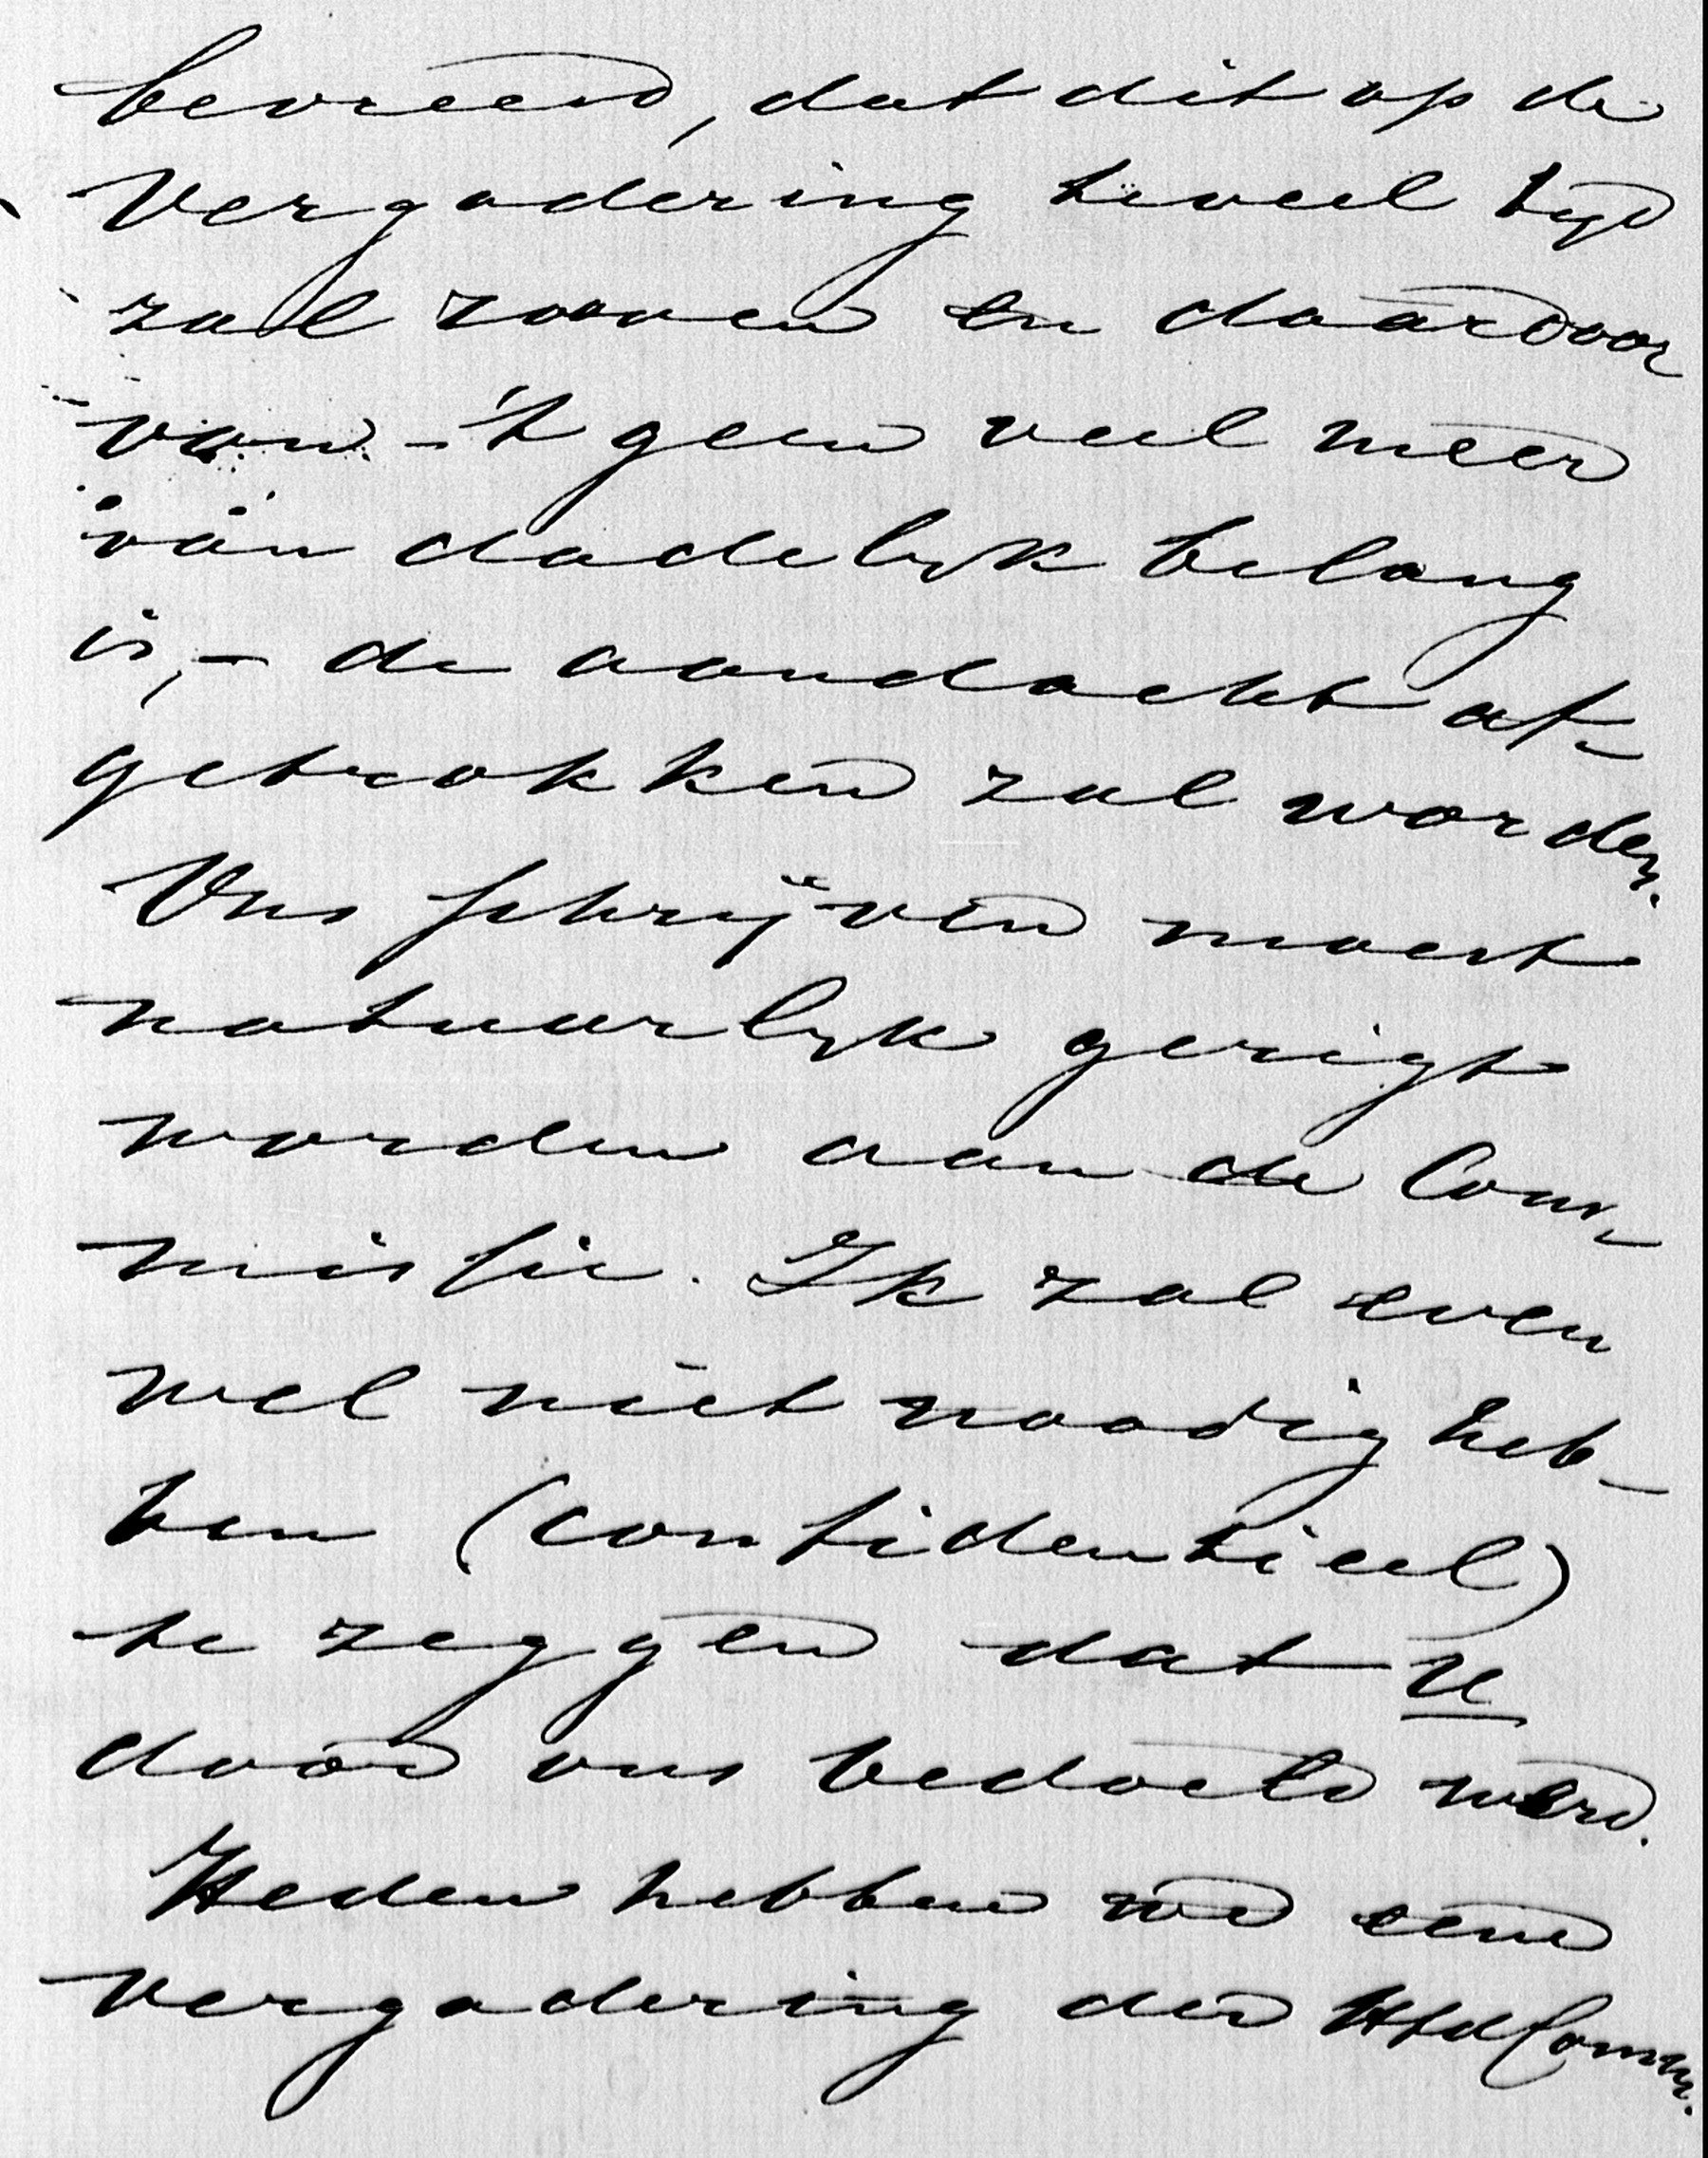 bevreesd, dat dit op de
Vergadering teveel tijd
zal rooven en daardoor
van –'t geen veel meer
van dadelijk belang
is, – de aandacht af-
getrokken zal worden.
Ons schrijven moest
natuurlijk gerigt
worden aan de Com-
missie. Ik zal even
wel niet noodig heb-
ben (confidentieel)
te zeggen dat U
door ons bedoeld werd.
Heden hebben we eene
vergadering der HfdComm.